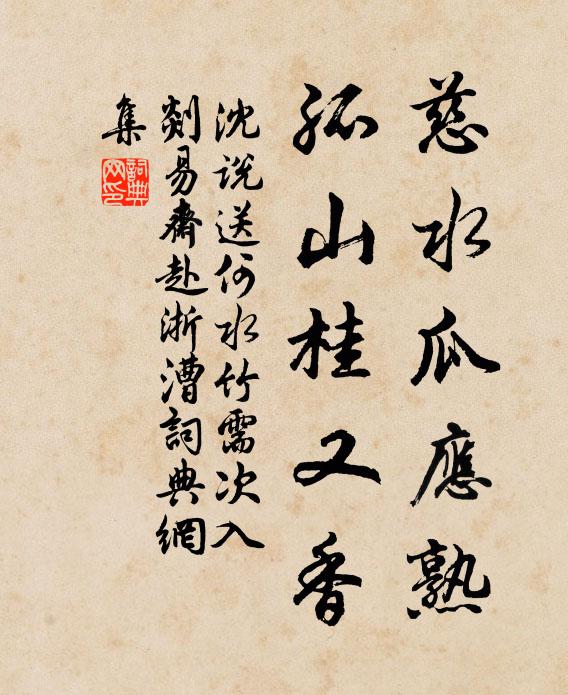 慈水瓜應熟
孤山桂又香
沈說送何水竹需次入
剡易齋赴浙漕詞典網
集
詞典网印